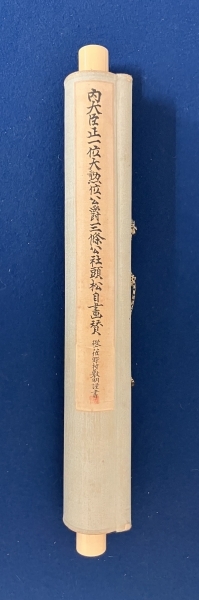 内大臣正一位大勲位公爵三條公社頭松自畫賛